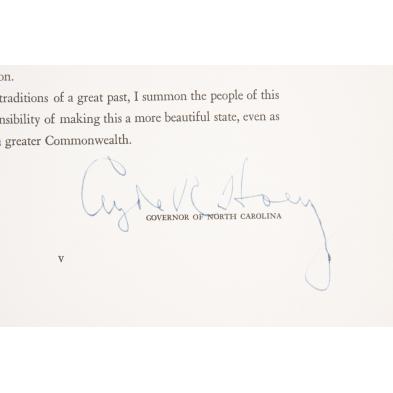 on.
traditions of a great past, I summon the people of this
nsibility of making this a more beautiful state, even as
greater Commonwealth.
Clyde R Hoey
GOVERNOR OF NORTH CAROLINA
v